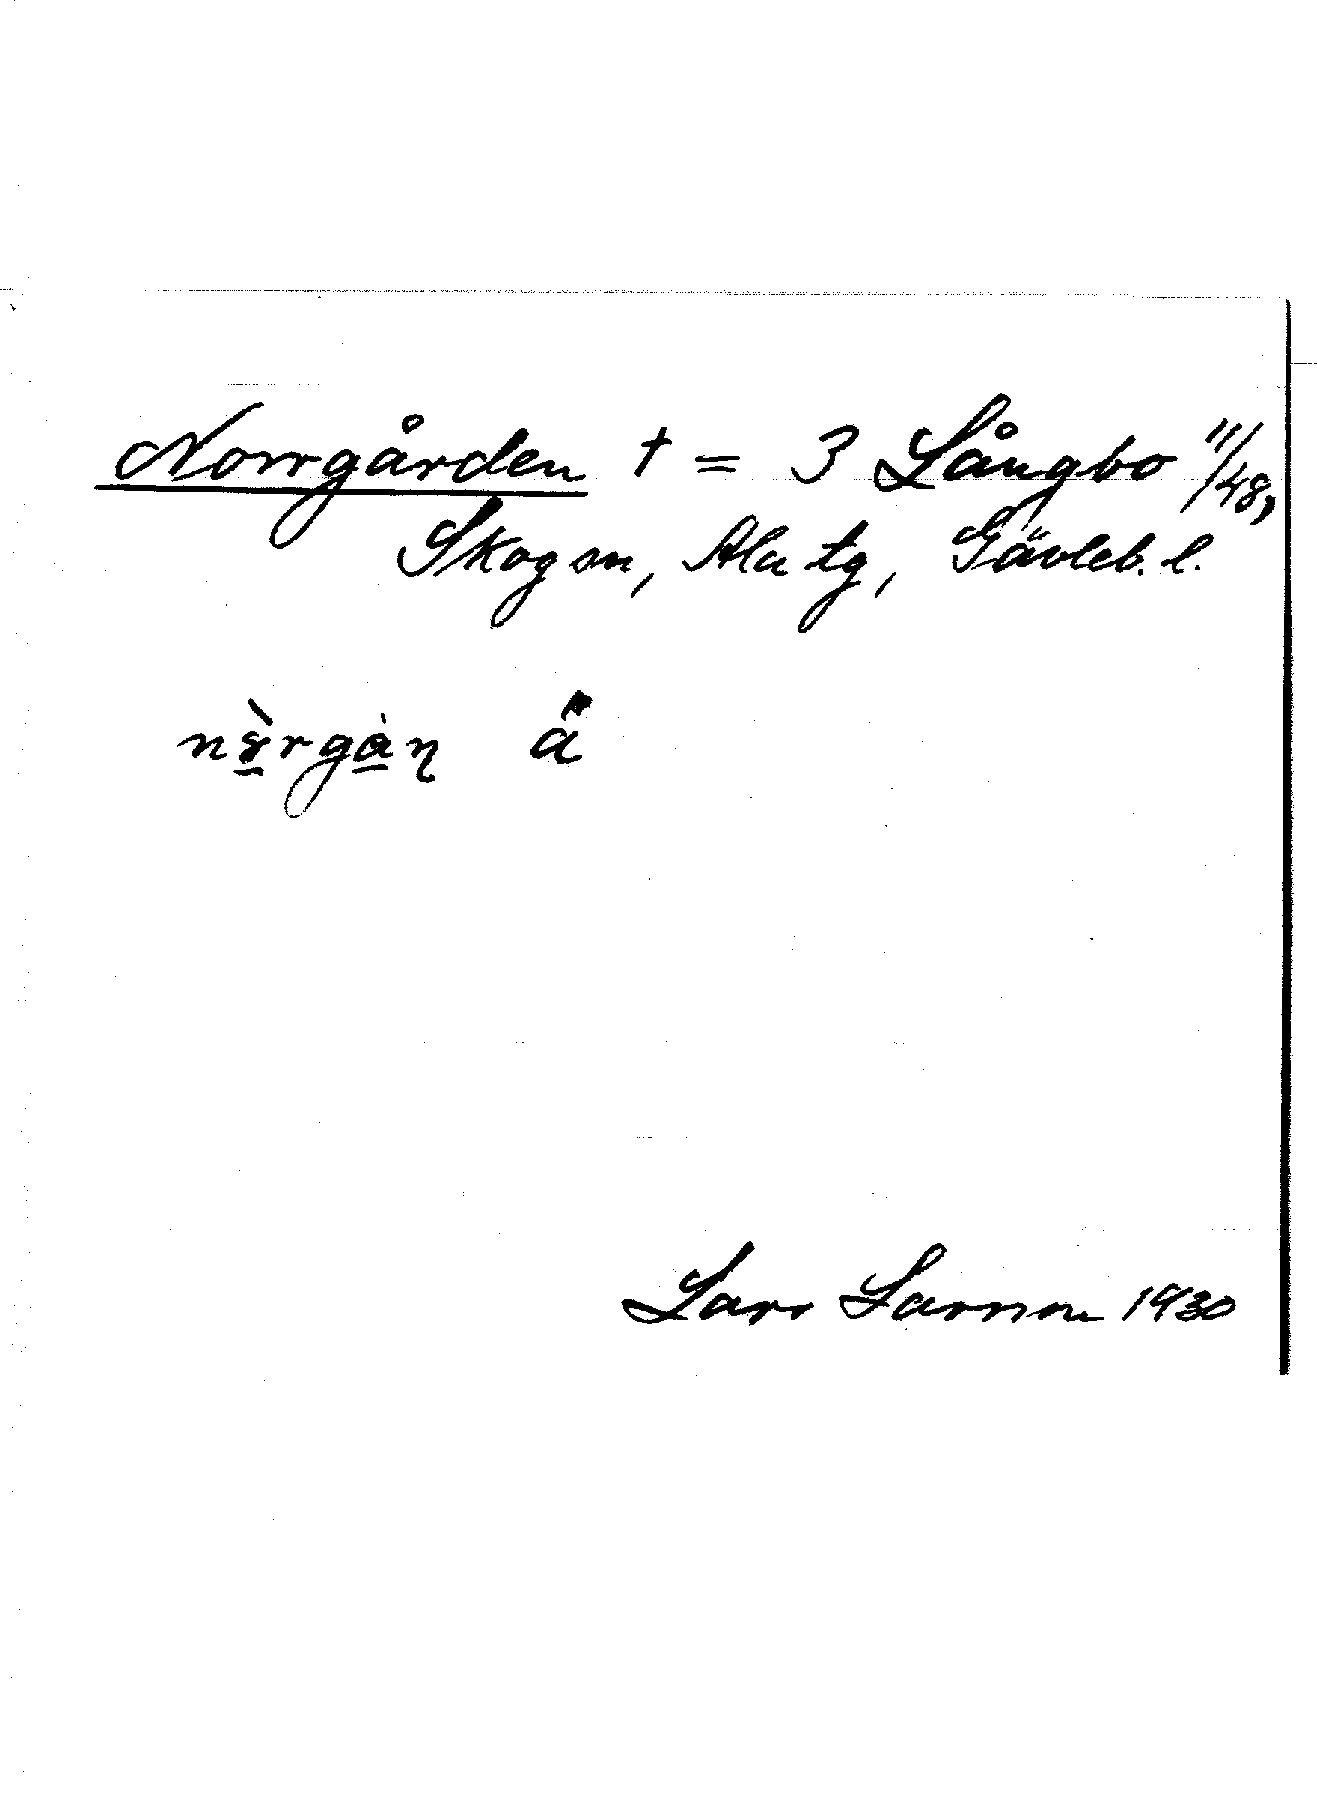 Norrgården † = 3 Långbo 11/48,
Skog sn, Ala tg, Gävleb. l.
nɤ̱̀rgȧ̱ɳ ä
Lars Larsson 1930